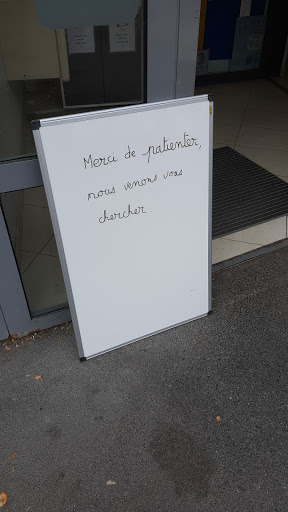 Merci de patienter,
nous venons vous
chercher